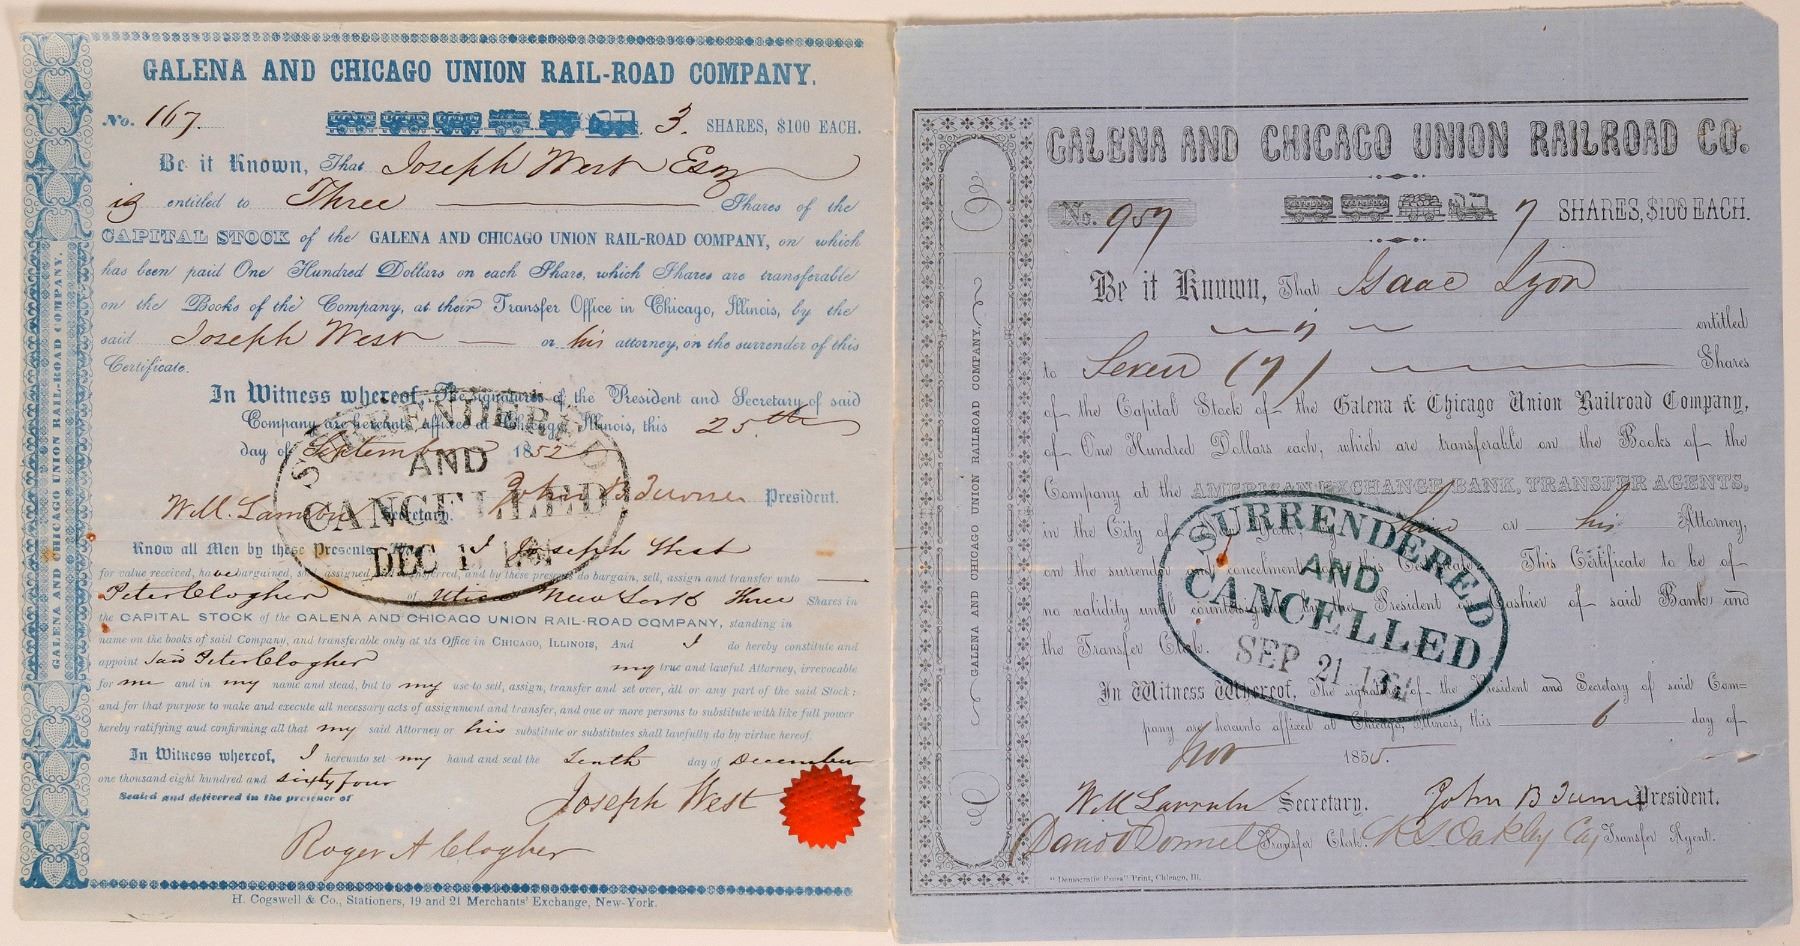 GALENA AND CHICAGO UNION RAIL-ROAD COMPANY.
No. 167. 3. SHARES, $100 EACH.
Be it Known, That Joseph West Esq
is entitled to Three Shares of the
CAPITAL STOCK of the GALENA AND CHICAGO UNION RAIL-ROAD COMPANY, on which
has been paid One Hundred Dollars on each Share, which Shares are transferable
on the Books of the Company, at their Transfer Office in Chicago, Illinois, by the
said Joseph West or his attorney, on the surrender of this
Certificate.
In Witness whereof, The signatures of the President and Secretary of said
Company are hereunto affixed at Chicago Illinois, this 25th
day of September 1852
John B Turner President.
W.M. Larrabee Secretary.
SURRENDERED
AND
CANCELLED
DEC
Know all Men by these Presents, That I Joseph West
for value received, have bargained, sold, assigned and transferred, and by these presents do bargain, sell, assign and transfer unto
Peter Clogher of Utica New York Three Shares in
the CAPITAL STOCK of the GALENA AND CHICAGO UNION RAIL-ROAD COMPANY, standing in
name on the books of said Company, and transferable only at its Office in CHICAGO, ILLINOIS, And I do hereby constitute and
appoint said Peter Clogher my true and lawful Attorney, irrevocable
for me and in my name and stead, but to my use to sell, assign, transfer and set over, all or any part of the said Stock;
and for that purpose to make and execute all necessary acts of assignment and transfer, and one or more persons to substitute with like full power
hereby ratifying and confirming all that my said Attorney or his substitute or substitutes shall lawfully do by virtue hereof.
In Witness whereof, I hereunto set my hand and seal the Tenth day of December
one thousand eight hundred and sixty four
Sealed and delivered in the presence of
Joseph West
Roger A Clogher
H. Cogswell & Co., Stationers, 19 and 21 Merchants' Exchange, New-York.
GALENA AND CHICAGO UNION RAIL-ROAD COMPANY.
GALENA AND CHICAGO UNION RAIL-ROAD COMPANY.
GALENA AND CHICAGO UNION RAILROAD CO.
No. 957 7 SHARES, $100 EACH.
Be it Known, That Isaac Lyon
is entitled
to Seven (7) Shares
of the Capital Stock of the Galena & Chicago Union Railroad Company,
of One Hundred Dollars each, which are transferable on the Books of the
Company at the AMERICAN EXCHANGE BANK, TRANSFER AGENTS,
in the City of New York, by or his Attorney,
on the surrender and cancelment of this Certificate This Certificate to be of
no validity until countersigned by the President or Cashier of said Bank and
the Transfer Clerk.
SURRENDERED
AND
CANCELLED
SEP 21
In Witness Whereof, The signatures of the President and Secretary of said Com=
pany are hereunto affixed at Chicago, Illinois, this 6 day of
Nov 1855.
W M Larrabee Secretary. John B Turner President.
David O Donnell Transfer Clerk. R S Oakley Transfer Agent.
"Democratic Press" Print, Chicago, Ill.
GALENA AND CHICAGO UNION RAILROAD COMPANY.